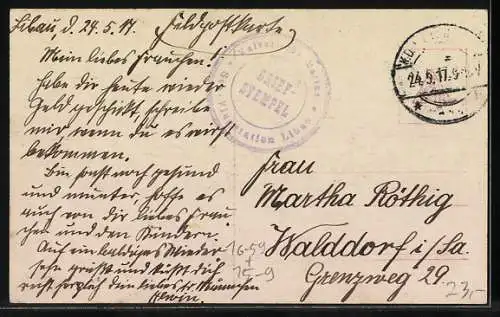 Libau, d. 24.5.17. Feldpostkarte
Mein liebes Frauchen!
habe dir heute wieder
Geld geschickt, schreibe
mir wenn du es wirst
bekommen.
Bin sonst noch gesund
und munter, hoffe es
auch von dir liebes Frau
chen und den Kindern.
Auf ein baldiges Wieder
sehn grüsst und küsst dich
recht herzlich dein liebes tr. Männchen
Erwin.
BRIEF-
STEMPEL
Libau
24.5.17.
Frau
Martha Röthig
Walddorf i/Sa.
Grenzweg 29.
16-59
+
15-9
23,-